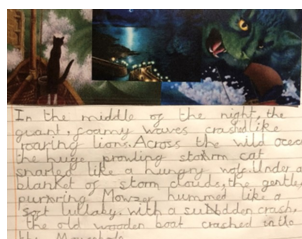 In the middle of the night, the
giant, foamy waves crashed like
roaring lions. Across the wild ocea
the huge prowling storm cat
snarled like a hungry wolf. Under a
blanket of storm clouds, the gentle
purring Mowzer hummed like a
soft lullaby. With a sudden crash
the old wooden boat crashed into
the